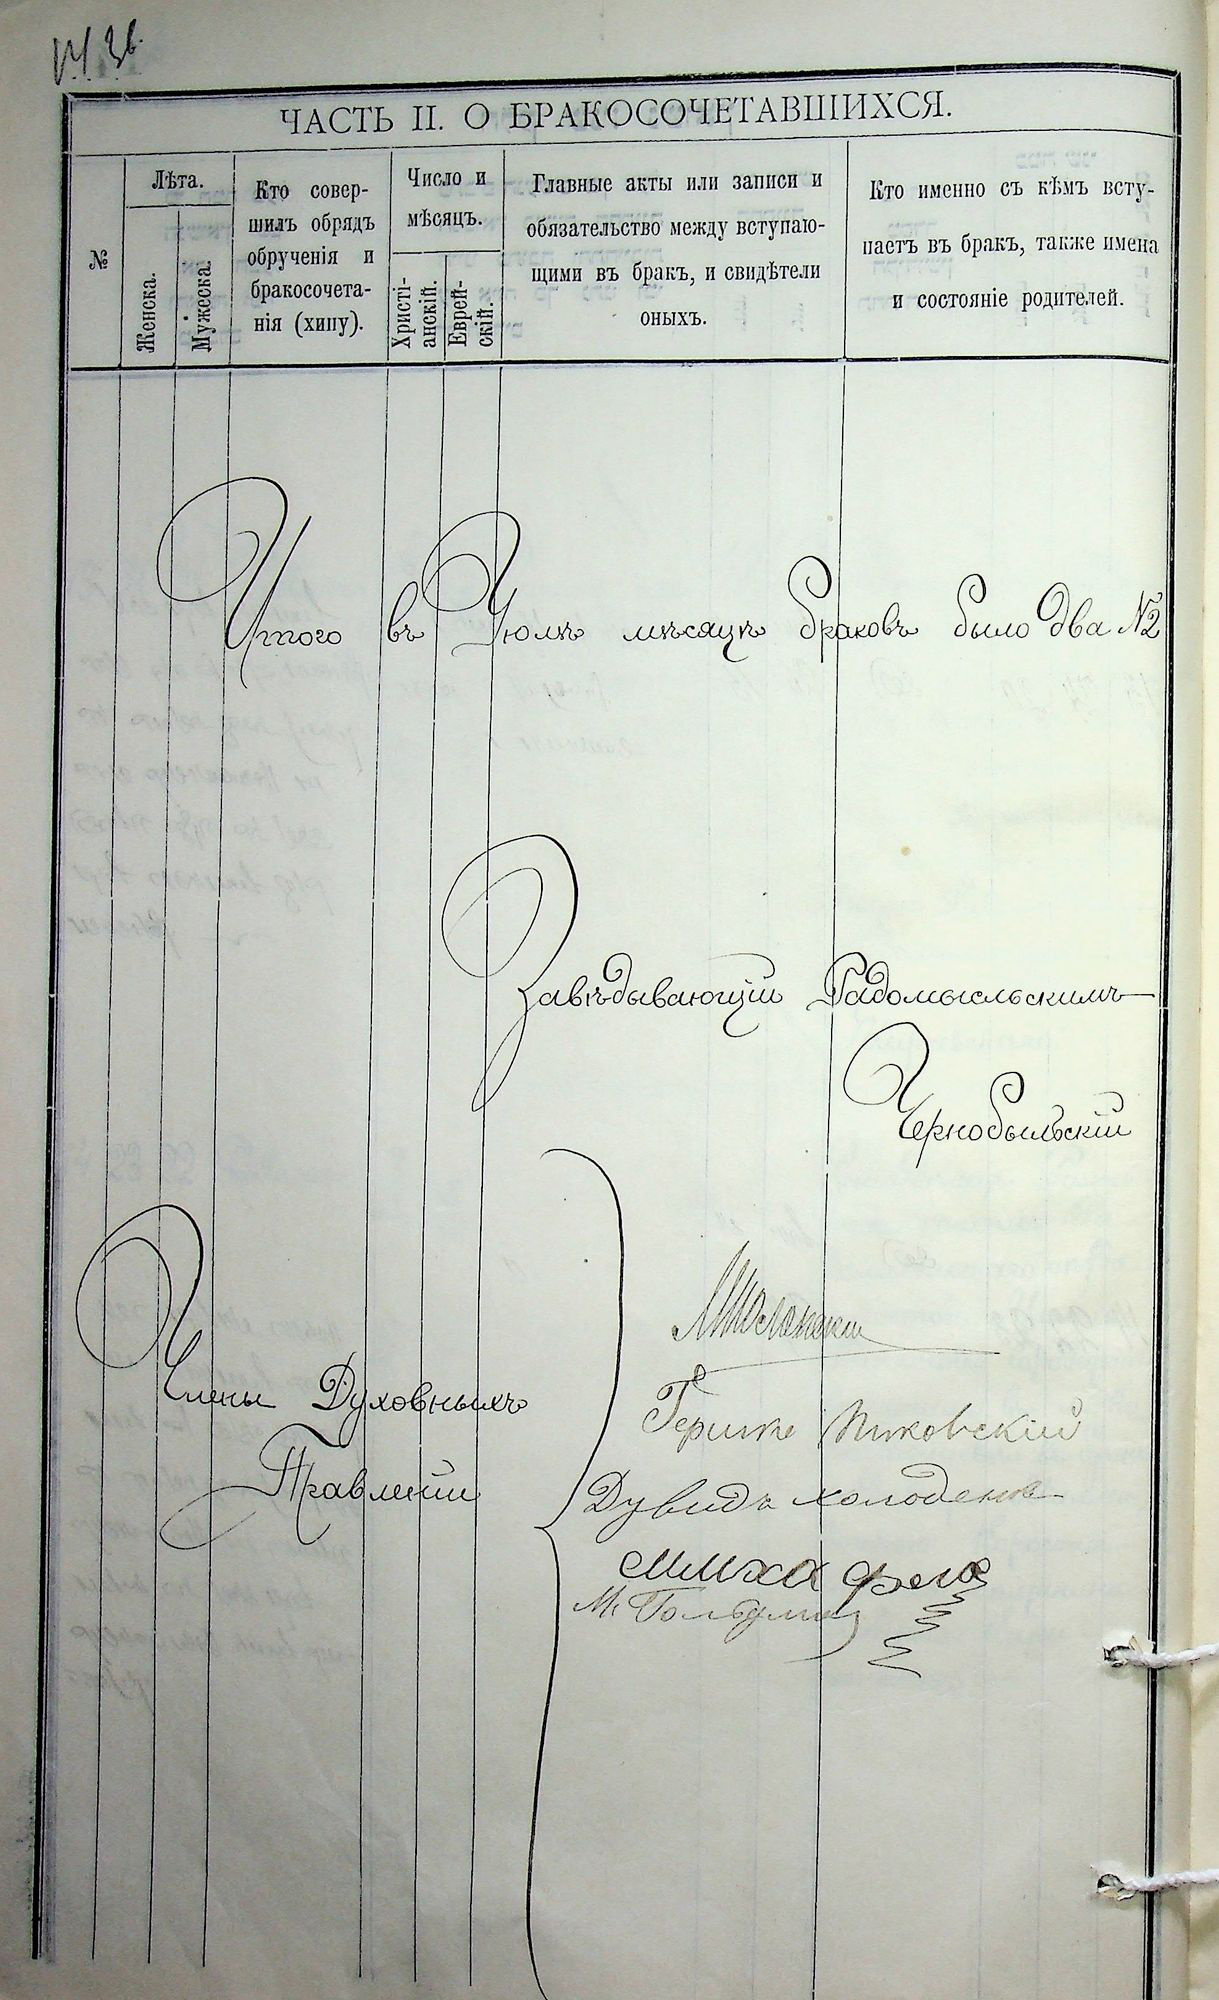 ЧАСТЬ II. О БРАКОСОЧЕТАВШИХСЯ.
№
Лѣта.
Женска.
Мужеска.
Кто совер-
шилъ обрядъ
обрученія и
бракосочета-
нія (хипу).
Число и
мѣсяцъ.
Христі-
анскій.
Еврей-
скій.
Главные акты или записи и
обязательство между вступаю-
щими въ бракъ, и свидѣтели
оныхъ.
Кто именно съ кѣмъ всту-
паетъ въ бракъ, также имена
и состояніе родителей.
Итого въ Іюлѣ мѣсяцѣ браковъ было два №2
Завѣдывающій Радомысльскимъ
Чернобыльскій
Члены Духовныхъ
Правленій
Дувидъ холоденко